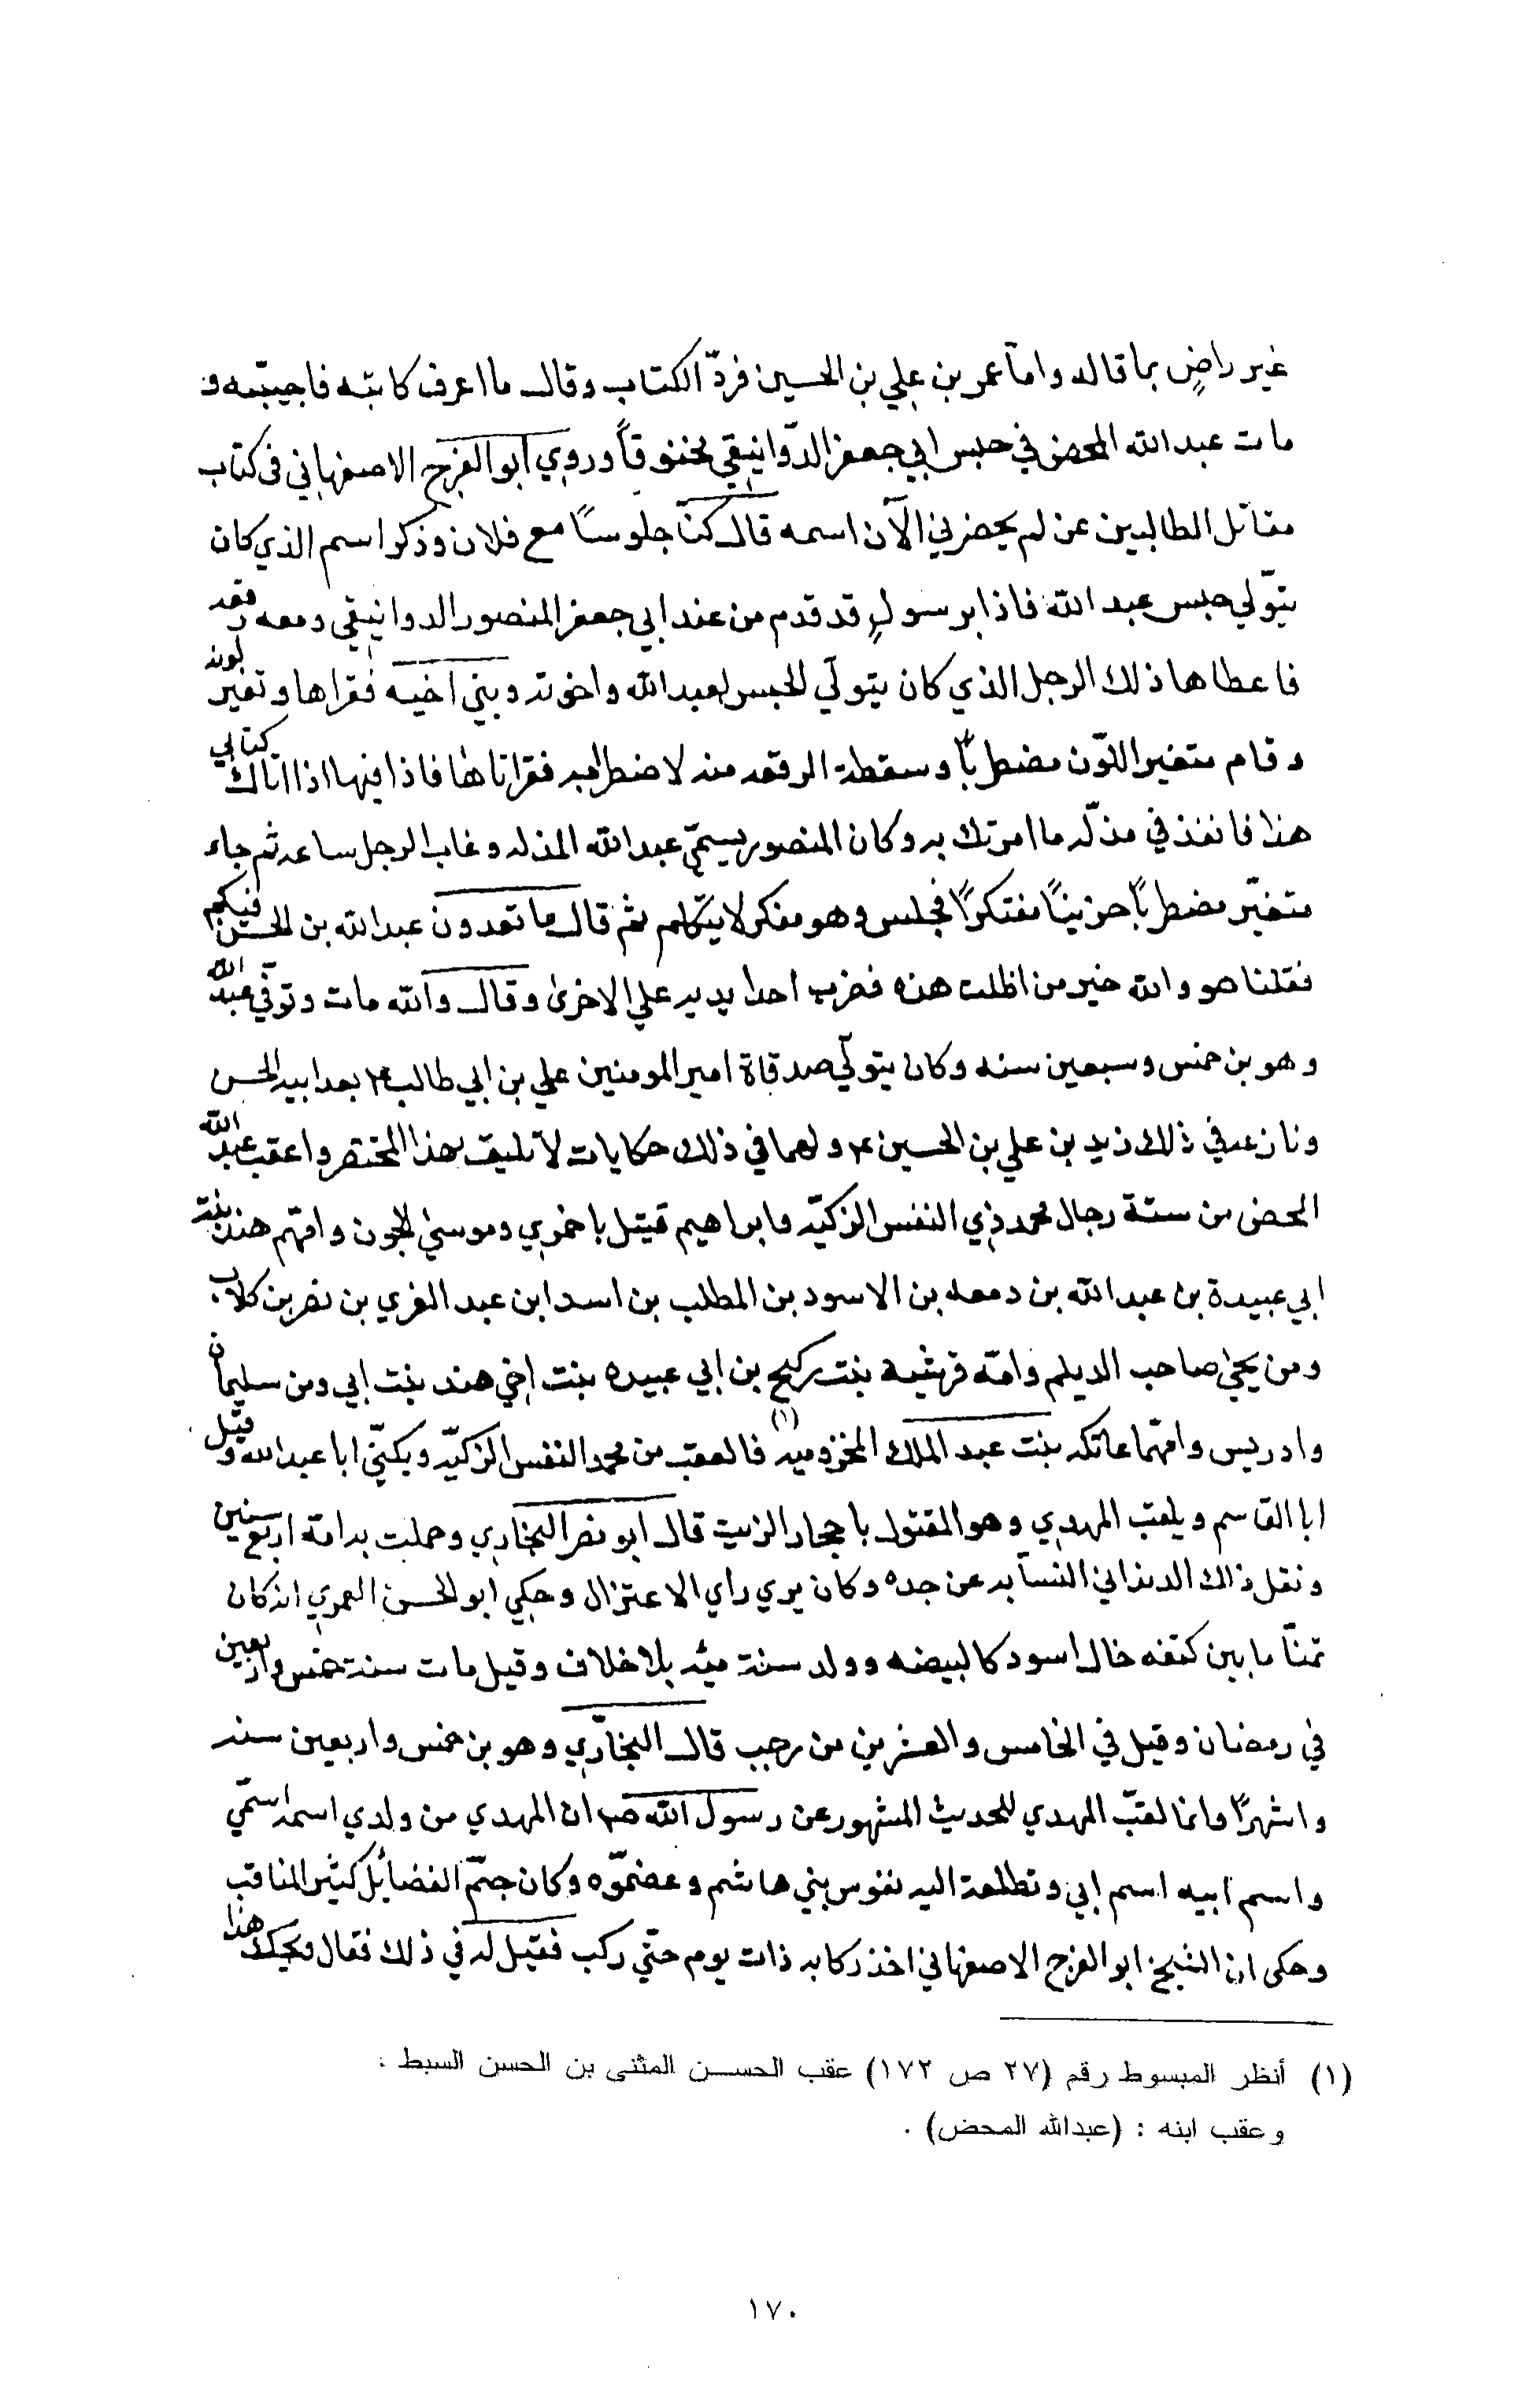 غير راضٍ بما قاله واما عمر بن علي بن الحسين فردّ الكتاب وقال ما اعرف كاتبه فاجيبته و
مات عبدالله المحض في حبس ابي جعفر الدوانيقي مخنوقاً وروي ابو الفرج الاصفهاني فى كتاب
مقاتل الطالبين عن لم يحضرني الآن اسمه قال كنّا جلوساً مع فلان وذكر اسم الذي كان
يتولي حبس عبد الله فاذا برسولٍ قد قدم من عند ابي جعفر المنصور الدوانيقي ومعه رقعه
فاعطاها ذلك الرجل الذي كان يتولّي الحبس لعبدالله واخوته وبني اخيه فقراها وتغير لونه
وقام متغير اللّون مضطرباً وسقطة الرقعه منه لاضطرابه فقراناها فاذا فيها اذا اتاك كتابي
هذا فانفذ في مذلّه ما امرتك به وكان المنصور يسمّي عبدالله المذله وغاب الرجل ساعه ثم جاء
متغيّر مضطرباً حزيناً مفتكراً فجلس وهو مفكر لا يتكلم ثم قال ما تعدون عبدالله بن الحسن فيكم
فقلنا هو والله خير من اظلت هذه فضرب احدا يديه علي الاخرى وقال والله مات وتوفّي عبد الله
وهو بن خمس وسبعين سنه وكان يتولّي صدقاة امير المومنين علي بن ابي طالب ٤ بعد ابيه الحسن
ونازعه في ذلك زيد بن علي بن الحسين ٤ ولهما في ذلك حكايات لا تليق بهذا المختصر واعقب عبد الله
المحض من ستة رجال محمد ذي النفس الزكيّه وابراهيم قتيل باخمري وموسىٰ الجون وامّهم هند بنت
ابي عبيدة بن عبدالله بن دمعه بن الاسود بن المطلب بن اسد ابن عبد العزي بن نصر بن كلاب
ومن يحيىٰ صاحب الديلم وامّه قريشيه بنت ركيح بن ابي عبيده بنت اخي هند بنت ابي ومن سليمان
وادريس وامّهما عاتكه بنت عبد الملك المخزوميه (١) فالعقب من محمد النفس الزكيّه ويكنّي ابا عبدالله وقيل
ابا القاسم ويلقب المهدي وهو المقتول باحجار الزيت قال ابو نصر البخاري وحملت به امة اربع سنين
ونقل ذلك الدنداني النسّابه عن جده وكان يري راي الاعتزال وحكي ابو الحسن العمري انه كان
تمتاماً بين كتفه خال اسود كالبيضه وولد سنة مئه بلا خلاف وقيل مات سنة خمس واربعين
في رمضان وقيل في الخامس والعشرين من رجب قال البخاري وهو بن خمس واربعين سنه
واشهراً وانما لقبّ المهدي للحديث المشهور عن رسول الله ص ان المهدي من ولدي اسمه اسمّي
واسم ابيه اسم ابي وتطلعة اليه نفوس بني هاشم وعضمّوه وكان جمّ الفضائل كثير المناقب
وحكى ان الشيخ ابو الفرج الاصفهاني اخذ ركابه ذات يوم حتّي ركب فقيل له في ذلك فقال ويحك هذا
(١) أنظر المبسوط رقم (٢٧ ص ١٧٢) عقب الحسـن المثنى بن الحسن السبط :
وعقب ابنه : (عبدالله المحض) .
١٧٠